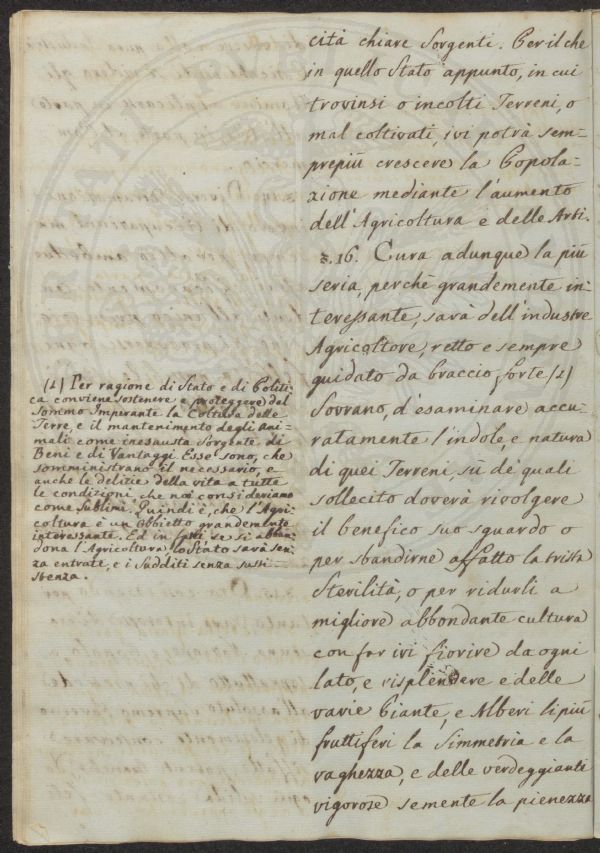 cità chiare Sorgenti. Per il che
in quello Stato appunto, in cui
trovinsi o incolti Terreni, o
mal coltivati, ivi potrà sem-
prepiù crescere la Popola-
zione mediante l'aumento
dell'Agricoltura e delle Arti.
§. 16. Cura adunque la più
seria, perchè grandemente in-
teressante, sarà dell'industre
Agricoltore, retto e sempre
guidato da braccio forte (1)
Sovrano, d'esaminare accu-
ratamente l'indole, e natura
di quei Terreni, sù de' quali
sollecito doverà rivolgere
il benefico suo sguardo o
per sbandirne affatto la trista
Sterilità, o per ridurli a
migliore abbondante cultura
con far ivi fiorire da ogni
lato, e risplendere e delle
varie Piante, e Alberi li più
fruttiferi la Simmetria e la
vaghezza, e delle verdeggianti
vigorose semente la pienezza
(1) Per ragione di Stato e di Politi-
ca conviene sostenere e proteggere del
Sommo Imperante la Coltura delle
Terre, e il mantenimento degli Ani=
mali come inesausta Sorgente di
Beni e di Vantaggi. Esse sono, che
somministrano il necessario, e
anche le delizie della vita a tutte
le condizioni che noi consideriamo
come Sublimi. Quindi è, che l'Agri-
coltura è un Obbietto grandemente
interessante. Ed in fatti se si abban-
dona l'Agricoltura, lo Stato sarà sen-
za entrate, e i Sudditi senza sussi-
stenza.